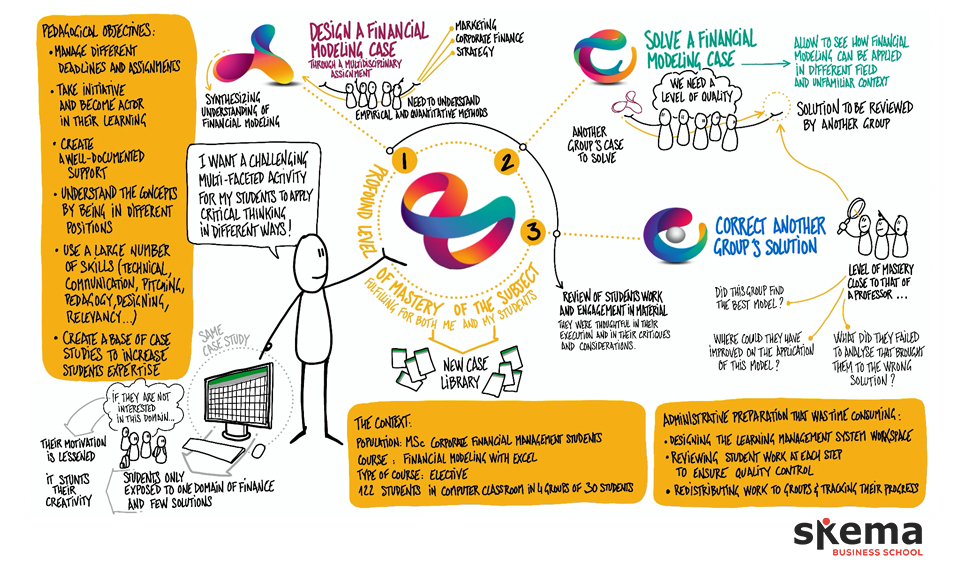 PEDAGOGICAL OBJECTIVES:
• MANAGE DIFFERENT
DEADLINES AND ASSIGNMENTS
• TAKE INITIATIVE
AND BECOME ACTOR
IN THEIR LEARNING
• CREATE
A WELL-DOCUMENTED
SUPPORT
• UNDERSTAND THE CONCEPTS
BY BEING IN DIFFERENT
POSITIONS
• USE A LARGE NUMBER
OF SKILLS (TECHNICAL,
COMMUNICATION, PITCHING,
PEDAGOGY, DESIGNING,
RELEVANCY...)
• CREATE A BASE OF CASE
STUDIES TO INCREASE
STUDENTS EXPERTISE
DESIGN A FINANCIAL
MODELING CASE
THROUGH A MULTIDISCIPLINARY
ASSIGNMENT
MARKETING
CORPORATE FINANCE
STRATEGY
SYNTHESIZING
UNDERSTANDING OF
FINANCIAL MODELING
NEED TO UNDERSTAND
EMPIRICAL AND QUANTITATIVE METHODS
SOLVE A FINANCIAL
MODELING CASE
ALLOW TO SEE HOW FINANCIAL
MODELING CAN BE APPLIED
IN DIFFERENT FIELD
AND UNFAMILIAR CONTEXT
WE NEED A
LEVEL OF QUALITY
ANOTHER
GROUP'S CASE
TO SOLVE
SOLUTION TO BE REVIEWED
BY ANOTHER GROUP
I WANT A CHALLENGING
MULTI-FACETED ACTIVITY
FOR MY STUDENTS TO APPLY
CRITICAL THINKING
IN DIFFERENT WAYS!
1
2
3
PROFOUND LEVEL
OF MASTERY OF THE SUBJECT
FULFILLING FOR BOTH ME AND MY STUDENTS
CORRECT ANOTHER
GROUP'S SOLUTION
LEVEL OF MASTERY
CLOSE TO THAT OF
A PROFESSOR ...
DID THIS GROUP FIND
THE BEST MODEL?
WHERE COULD THEY HAVE
IMPROVED ON THE APPLICATION
OF THIS MODEL?
WHAT DID THEY FAILED
TO ANALYSE THAT BROUGHT
THEM TO THE WRONG
SOLUTION?
REVIEW OF STUDENTS WORK
AND ENGAGEMENT IN MATERIAL
THEY WERE THOUGHTFUL IN THEIR
EXECUTION AND IN THEIR CRITIQUES
AND CONSIDERATIONS.
NEW CASE
LIBRARY
SAME
CASE STUDY
IF THEY ARE NOT
INTERESTED
IN THIS DOMAIN...
THEIR MOTIVATION
IS LESSENED
IT STUNTS
THEIR
CREATIVITY
STUDENTS ONLY
EXPOSED TO ONE DOMAIN OF FINANCE
AND FEW SOLUTIONS
THE CONTEXT:
POPULATION: MSc CORPORATE FINANCIAL MANAGEMENT STUDENTS
COURSE: FINANCIAL MODELING WITH EXCEL
TYPE OF COURSE: ELECTIVE
122 STUDENTS IN COMPUTER CLASSROOM IN 4 GROUPS OF 30 STUDENTS
ADMINISTRATIVE PREPARATION THAT WAS TIME CONSUMING:
• DESIGNING THE LEARNING MANAGEMENT SYSTEM WORKSPACE
• REVIEWING STUDENT WORK AT EACH STEP
TO ENSURE QUALITY CONTROL
• REDISTRIBUTING WORK TO GROUPS & TRACKING THEIR PROGRESS
skema
BUSINESS SCHOOL